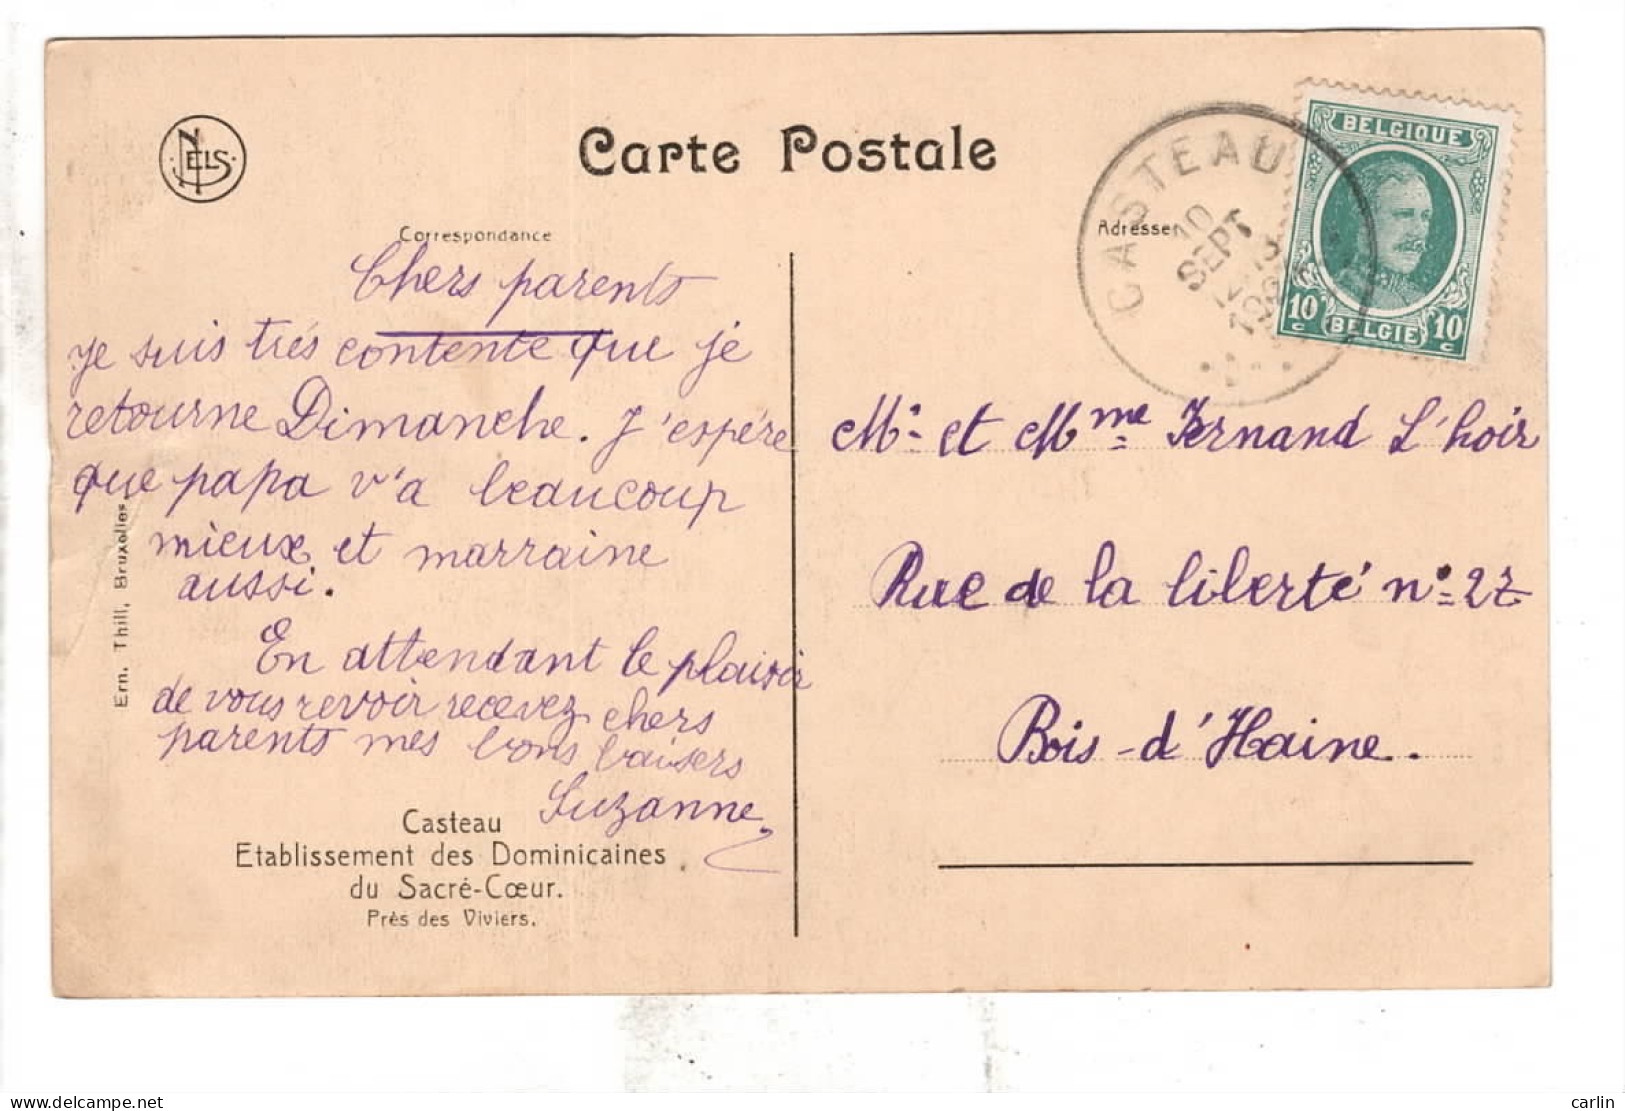 NELS
Carte Postale
Correspondance
Adresse
CASTEAU
10
SEPT
BELGIQUE
10 c
BELGIE
10 c
Chers parents
Je suis très contente que je
retourne Dimanche. J'espère
que papa v'a beaucoup
mieux et marraine
aussi.
En attendant le plaisir
de vous revoir recevez chers
parents mes bons baisers
Suzanne
Mr et Mme Fernand L'hoir
Rue de la liberté n° 27
Bois-d'Haine.
Ern. Thill, Bruxelles
Casteau
Etablissement des Dominicaines
du Sacré-Cœur.
Près des Viviers.
delcampe.net
carlin